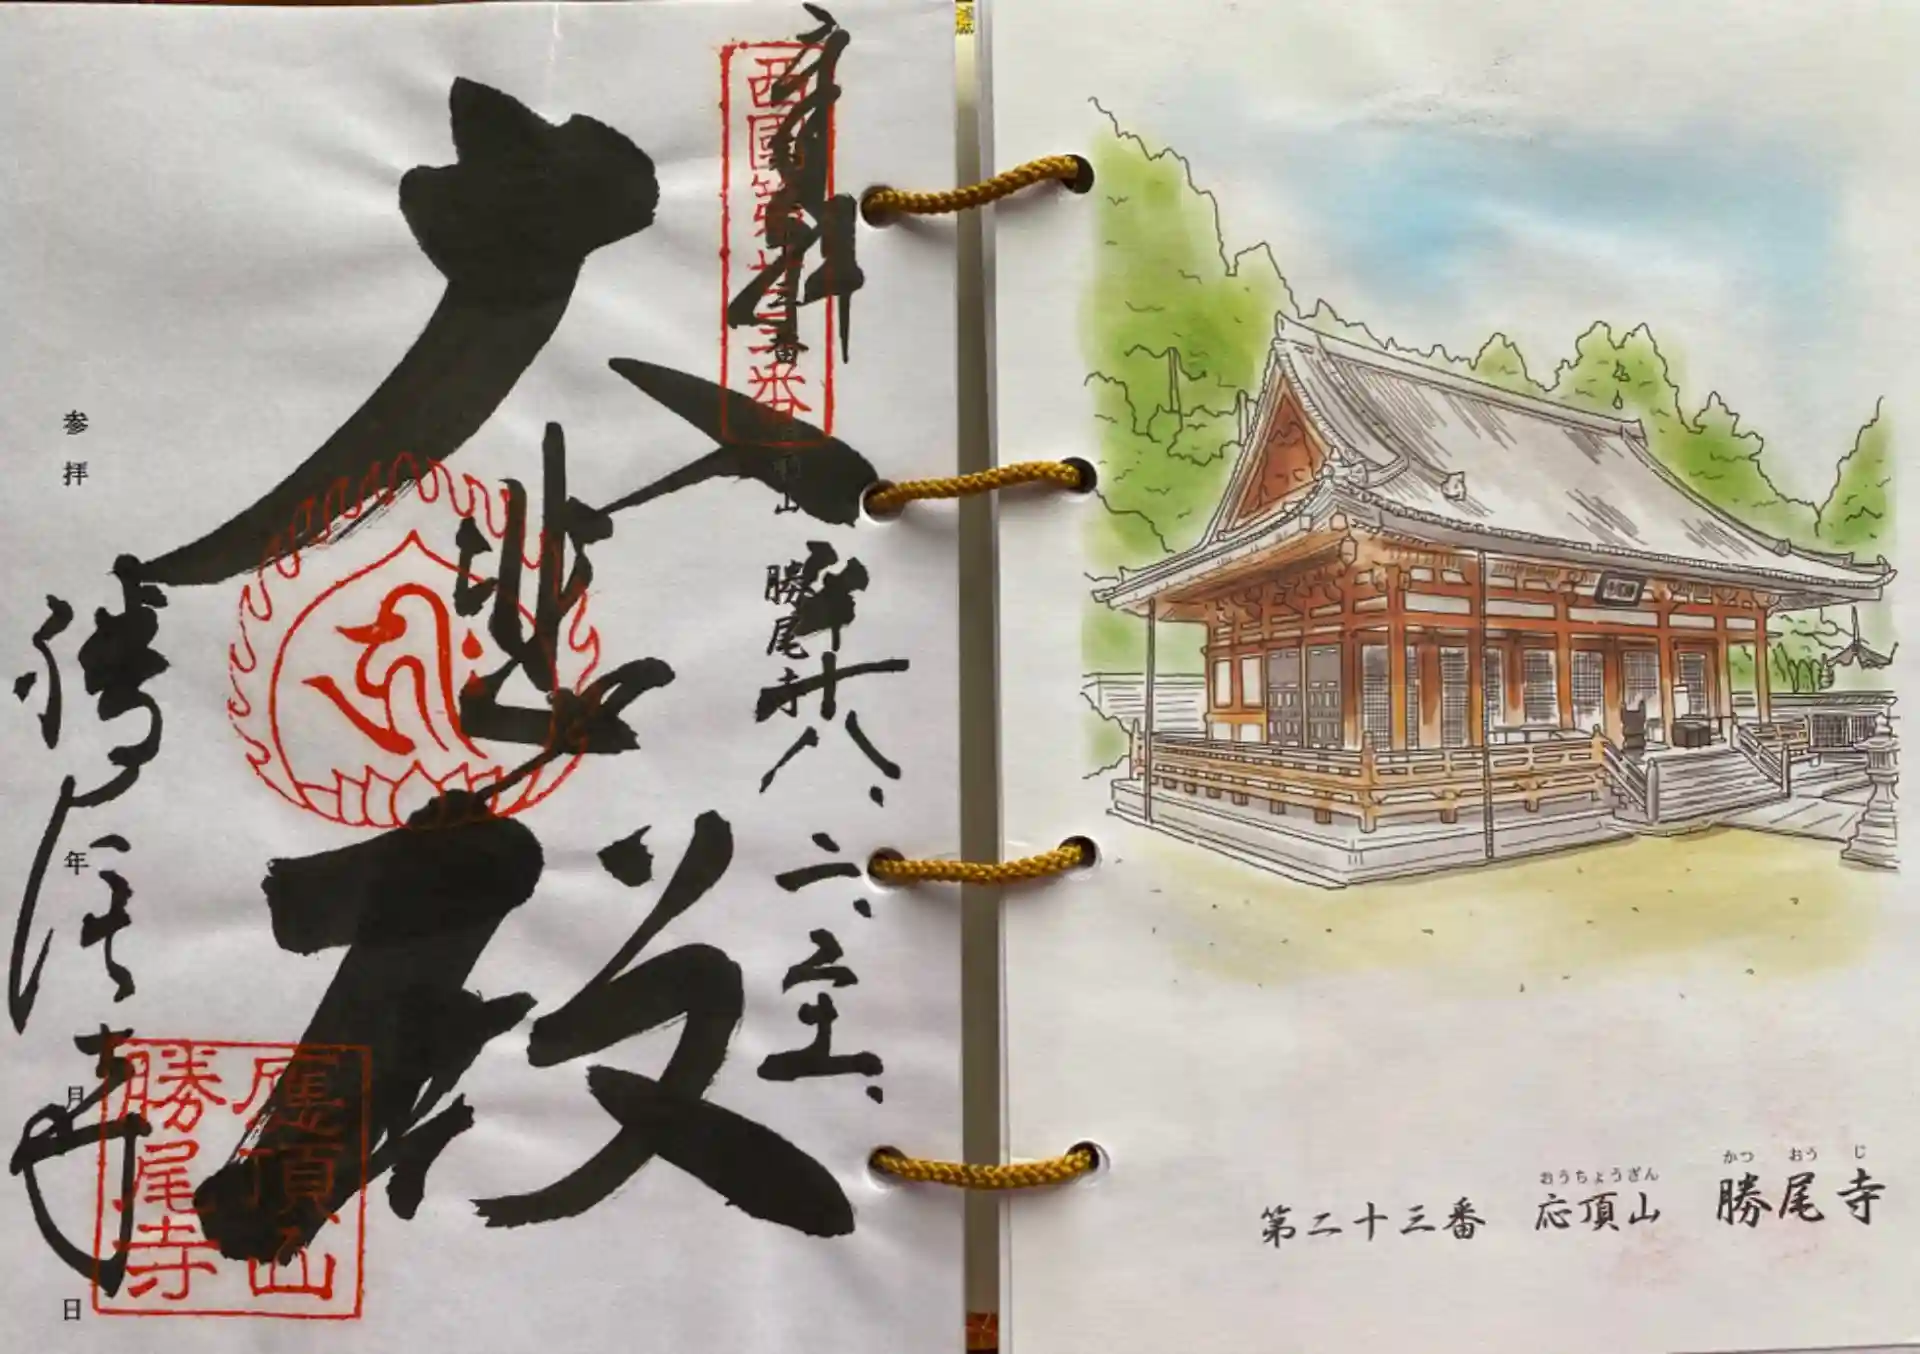 かつおうじ
勝尾寺
おうちょうざん
応頂山
第二十三番
奉拝
西國第廿三番
勝尾寺
大悲殿
應頂山
勝尾寺
勝尾寺
参拝 年 月 日